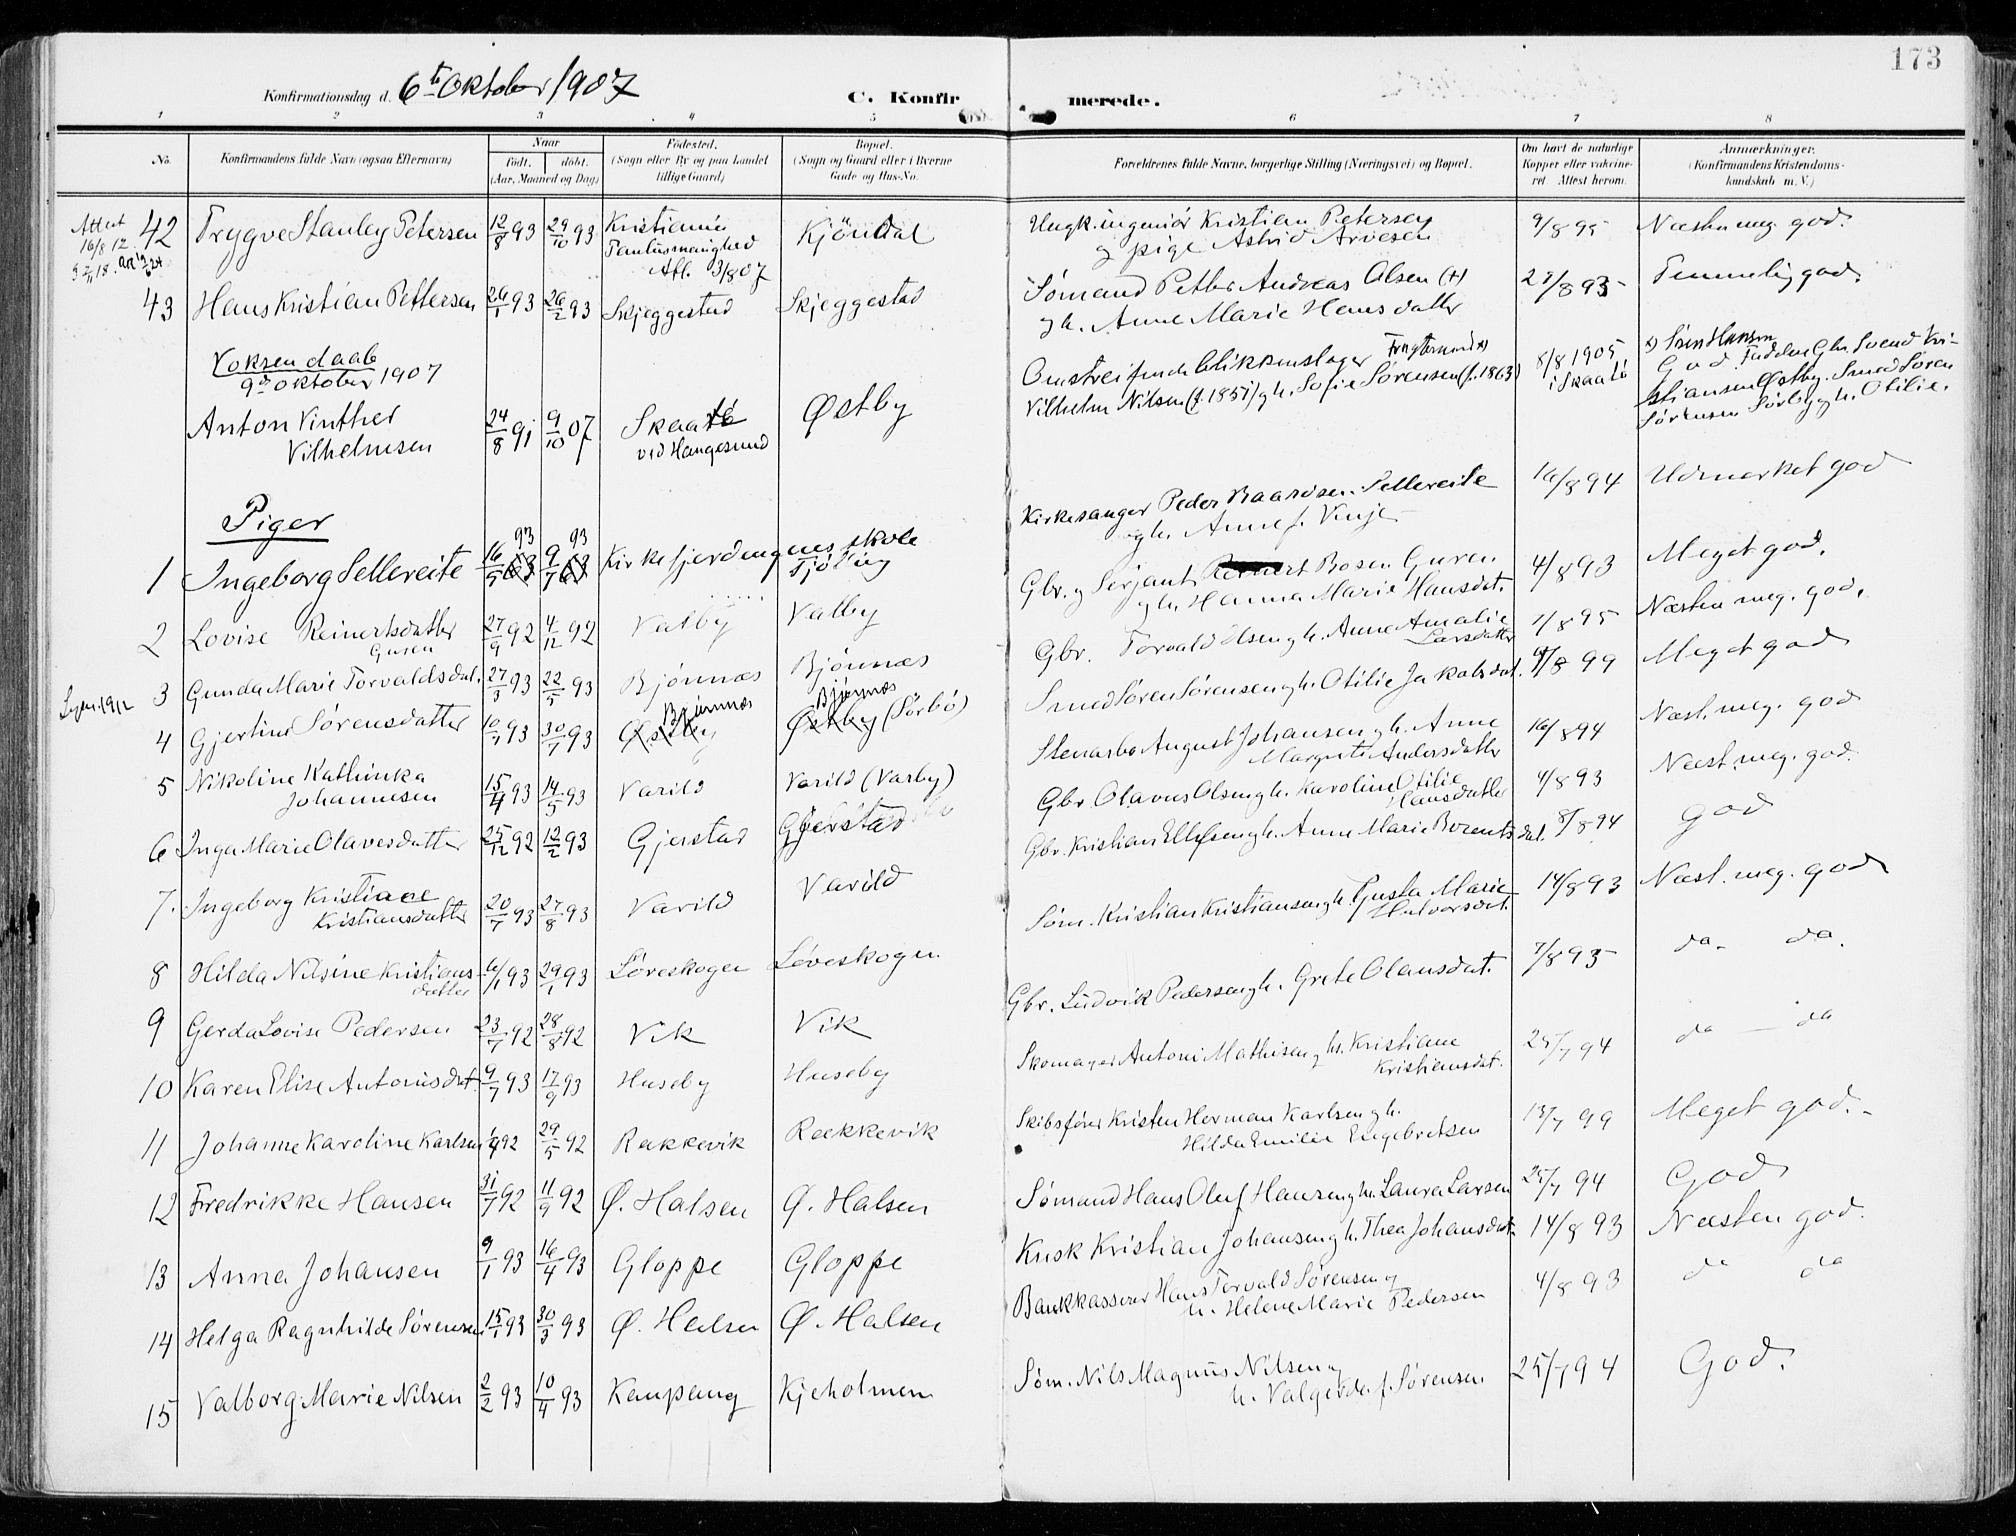 173
Konfirmationsdag d. 6te Oktober 1907
C. Konfirmerede.
1 2 3 4 5 6 7 8
No. Konfirmandens fulde Navn (ogsaa Efternavn) Naar født. døbt. (Aar, Maaned og Dag) Fødested. (Sogn eller By og paa Landet tillige Gaard) Bopæl. (Sogn og Gaard eller i Byerne Gade og Hus-No. Forældrenes fulde Navne, borgerlige Stilling (Næringsvei) og Bopæl. Om havt de naturlige Kopper eller vakcineret. Attest herom. Anmærkninger. (Konfirmandens Kristendomskundskab m. V.)
Attest 16/8 12.
42 Trygve Stanley Petersen 12/8 93 29/10 93 Kristiania Paulusmenighed Att. 3/8 07 Kjöndal Ungk. ingeniör Kristian Petersen og pige Astrid Arvesen 9/8 95 Næsten meg. god.
43 Hans Kristian Pettersen 26/1 93 26/2 93 Skjeggestad Skjeggestad Sømand Petter Andreas Olsen (+) og h. Anne Marie Hansdatter 27/8 93 Temmelig god.
Voksendaab
9de oktober 1907
Anton Vinther Vilhelmsen 24/8 91 9/10 07 Skaatö ved Haugesund Østby Omstreifende blikkenslager Vilhelm Nilsen (f. 1857) og h. Sofie Sørensen (f. 1863) 8/8 1905 i Skaatö God Faddere Gbr. Svend Kristiansen Østby. Smed Søren Sørensen Sørby og h. Otilie.
Piger
1 Ingeborg Sellereite 16/5 93 9/7 93 Kirkefjerdingens skole Tjölling Kirkesanger Peder Baardsen Sellereite og h. Anne f. Vinje 16/8 94 Udmerket god
2 Lovise Reinertsdatter Gusen 27/9 92 4/12 92 Valby Valby Gbr. og Serjant Reinert Bosen Guren og h. Hanna Marie Hansdat. 4/8 93 Meget god.
3 Gunda Marie Torvaldsdat. 27/3 93 22/5 93 Bjönnæs Bjönnæs Gbr. Torvald Olsen og h. Anne Amalie Larsdatter 1/8 95 Næsten meg. god.
4 Gjertine Sørensdatter 10/7 93 30/7 93 Østby Bjønnæs Østby (Sörbö) Bjønnæs Smed Søren Sørensen og h. Otilie Jakobsdat. 9/8 99 Meget god
5 Nikoline Kathinka Johannesen 15/4 93 14/5 93 Varild Varild (Varby) Stenarb. August Johansen og h. Anne Margrete Andersdatter 16/8 94 Næst. meg. god
6 Inga Marie Olavesdatter 25/12 92 12/2 93 Gjerstad Gjerstad Gbr. Olavus Olsen og h. Karoline Otilie Hansdatter 4/8 93 Næst. meg. god.
7. Ingeborg Kristiane Kristiansdatter 20/7 93 27/8 93 Varild Varild Gbr. Kristian Ellefsen og h. Anne Marie Borentsdat. 8/8 94 God
8 Hilda Nilsine Kristiansdatter 6/1 93 29/1 93 Löveskogen Löveskogen Søm. Kristian Kristiansen og h. Gusta Marie Halvorsdat. 14/8 93 Næst. meg. god
9 Gerda Lovise Pedersen 23/7 92 28/8 92 Vik Vik Gbr. Ludvik Pedersen og h. Grete Olausdat. 7/8 93 da. da.
10 Karen Elise Antonisdat. 9/7 93 17/9 93 Huseby Huseby Skomager Antoni Mathisen og h. Kristiane Kristiansdat. 25/7 94 da — da
11 Johanne Karoline Karlsen 92 29/5 92 Rækkevik Rækkevik Skibsfører Kristen Herman Karlsen og h. Hilda Emilie Engebretsen 13/7 99 Meget god.
12 Fredrikke Hansen 31/7 92 11/9 92 Ø. Halsen Ø. Halsen Sømand Hans Oluf Hansen og h. Laura Larsen 25/7 94 God
13 Anna Johansen 9/1 93 16/4 93 Gloppe Gloppe Kusk Kristian Johansen og h. Thea Johansdat. 14/8 93 Næsten god.
14 Helga Ragnhilde Sørensen 15/1 93 30/3 93 Ø. Halsen Ø. Halsen Bankkasserer Hans Torvald Sørensen og h. Helene Marie Pedersen 4/8 93 da da
15 Valborg Marie Nilsen 2/2 93 10/4 93 Kaupang Kjeholmen Søm. Nils Magnus Nilsen og h. Valgerda f. Sørensen 25/7 94 God.